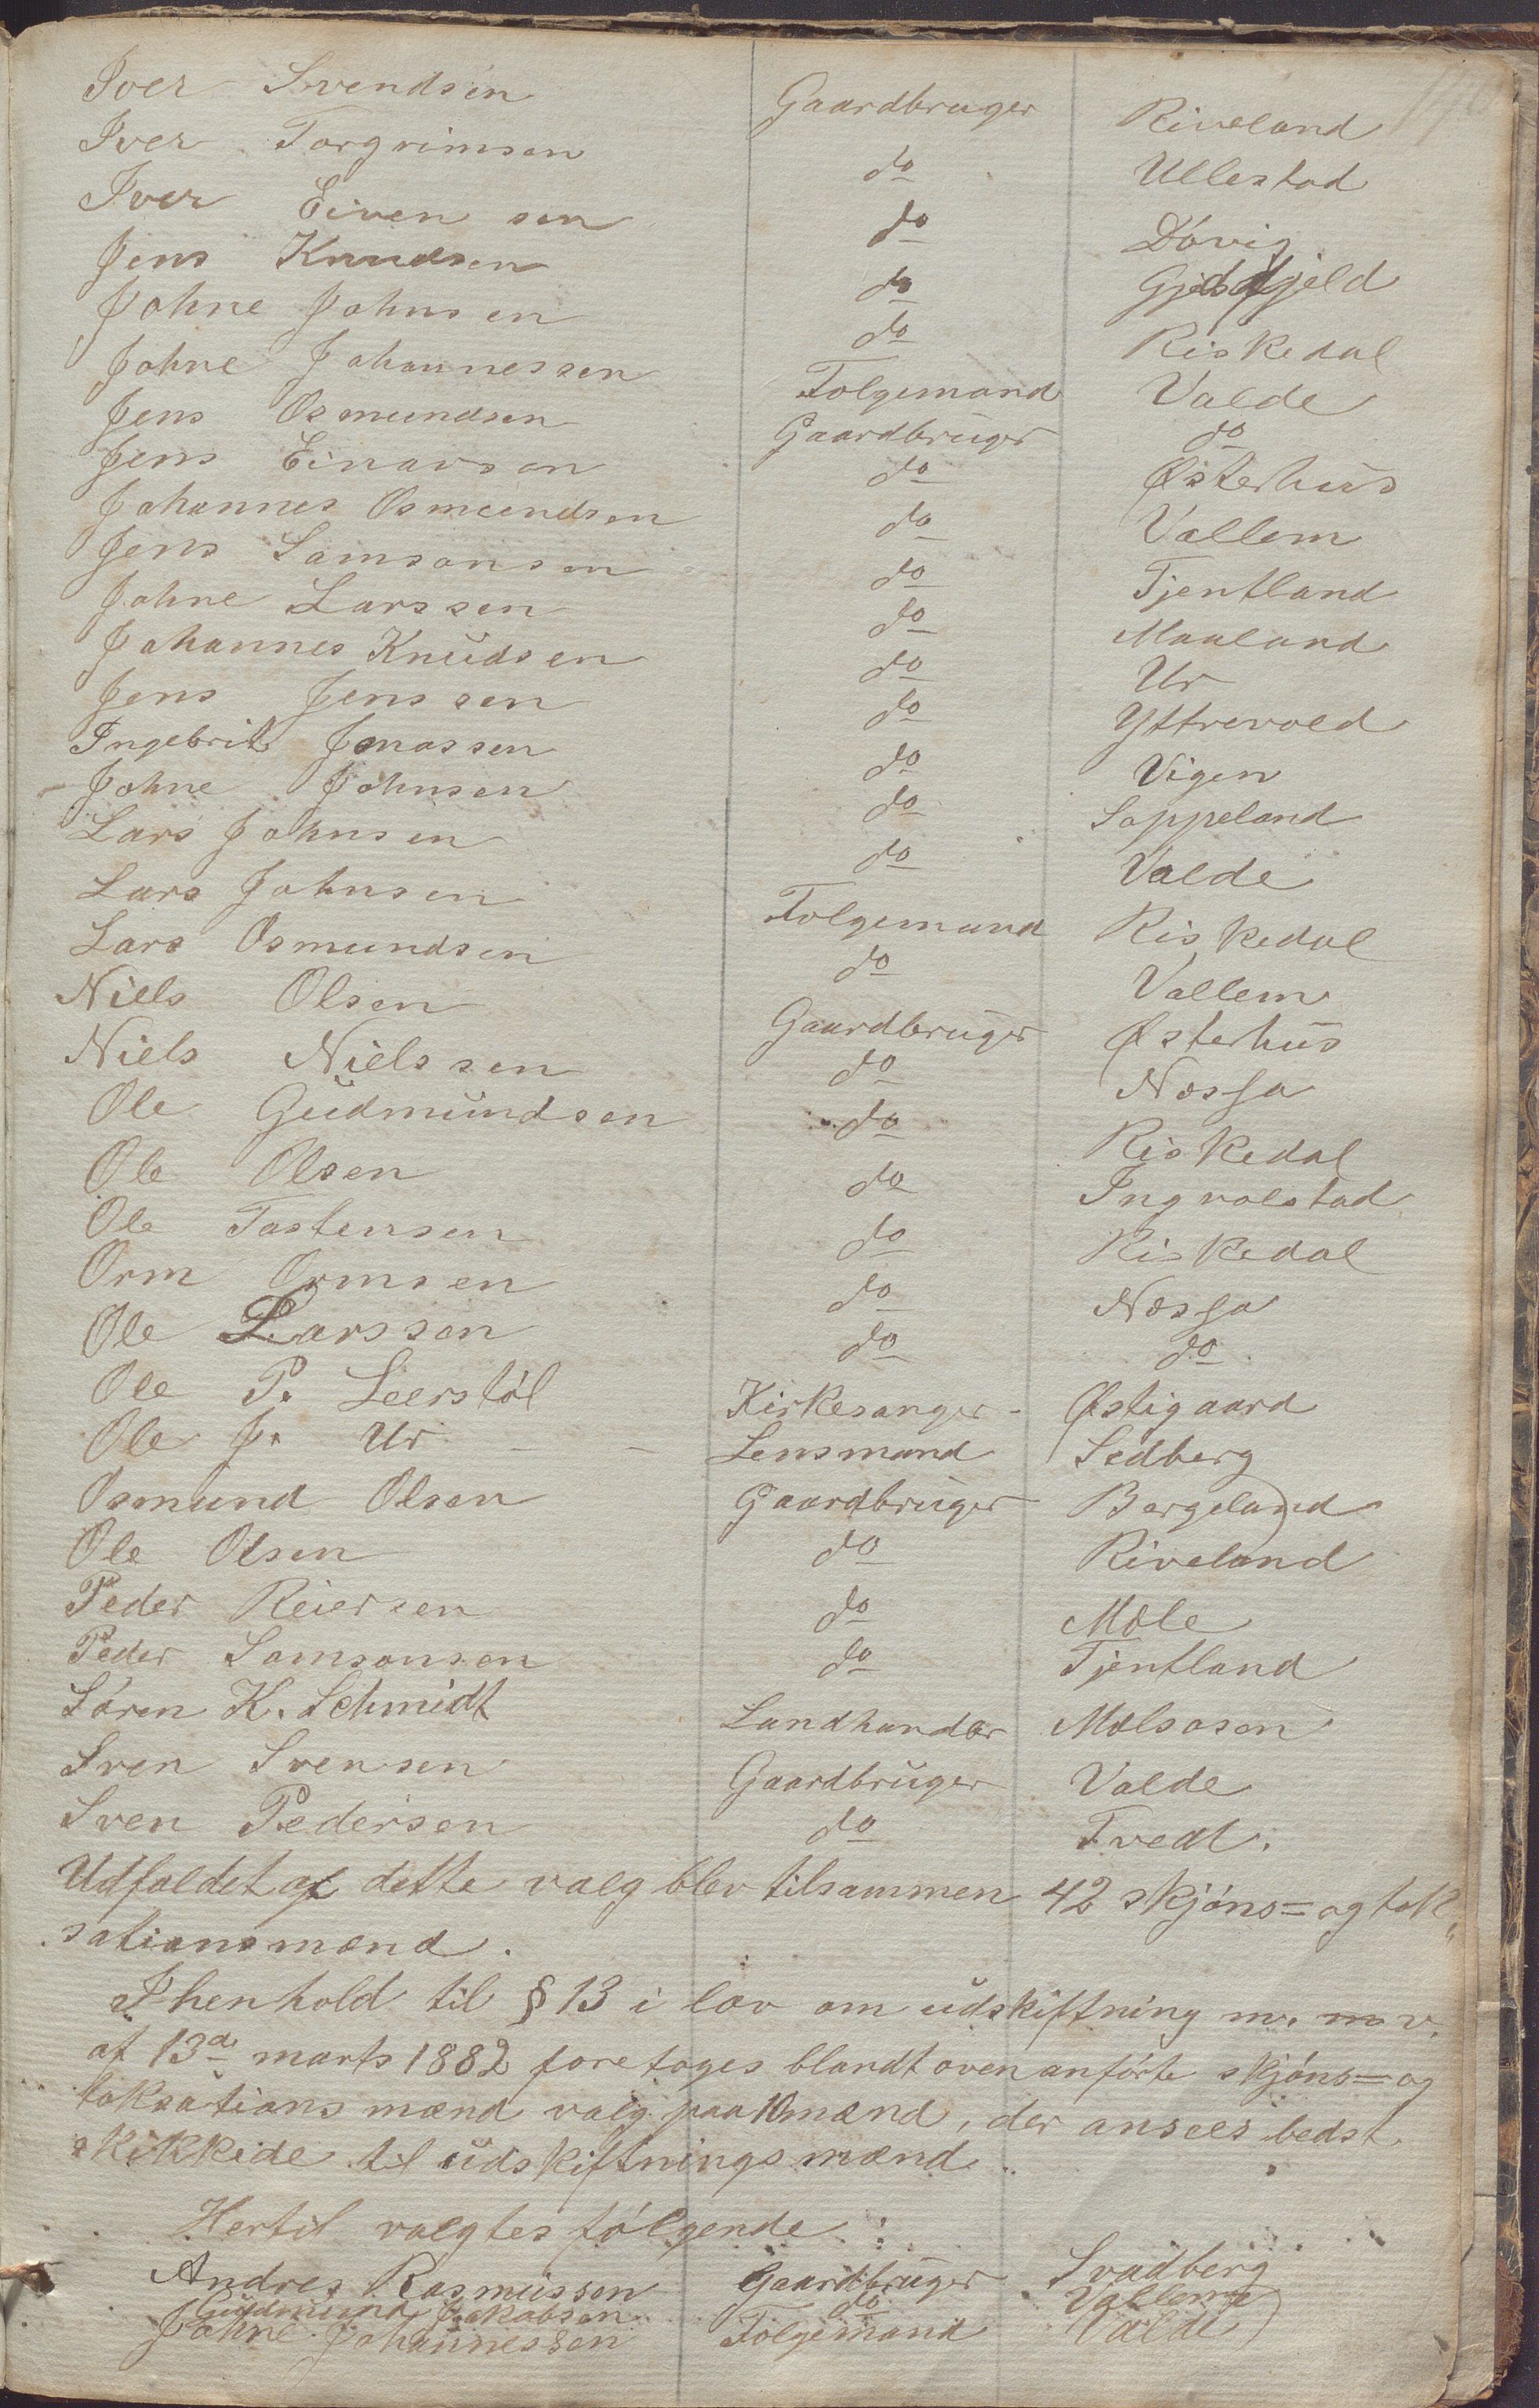 Iver Svendsen Gaardbruger Riveland
Iver Torgrimsen do Ullestad
Iver Eivensen do Døvig
Jens Knudsen do Gjesfjeld
Johne Johnsen do Riskedal
Johne Johannessen Folgemand Valde
Jens Osmundsen Gaardbruger do
Jens Einarsen do Østerhus
Johannes Osmundsen do Vallem
Jens Samsonsen do Tjentland
Johne Larssen do Maaland
Johannes Knudsen do Ur
Jens Jenssen do Yttrevold
Ingebrit Jonassen do Vigen
Johne Johnsen do Soppeland
Lars Johnsen do Valde
Lars Johnsen Folgemand Riskedal
Lars Osmundsen do Vallem
Niels Olsen Gaardbruger Østerhus
Niels Nielssen do Nossa
Ole Gudmundsen do Riskedal
Ole Olsen do Ingvalstad
Ole Tostensen do Riskedal
Orm Ormsen do Nossa
Ole Larssen do do
Ole P. Leerstøl Kirkesanger Østigaard
Ole J. Ur Lensmand Sedberg
Osmund Olsen Gaardbruger Bergeland
Ole Olsen do Riveland
Peder Reiersen do Mæle
Peder Samsonsen do Tjentland
Søren K. Schmidt Landhandler Mælsosen
Sven Svensen Gaardbruger Valde
Sven Pedersen do Tvedt.
Udfaldet af dette valg blev tilsammen 42 skjøns= og tak„
sationsmænd.
I henhold til § 13 i lov om udskiftning m. m v.
af 13de marts 1882 foretoges blandt ovenanførte skjøns= og
taksationsmænd valg paa 10 mænd, der ansees bedst
skikkede til udskiftningsmænd.
Hertil valgtes følgende:
Andres Rasmussen Gaardbruger Svadberg
Gudmund Jakobsen do Vallem
Johne Johannessen Folgemand Valde